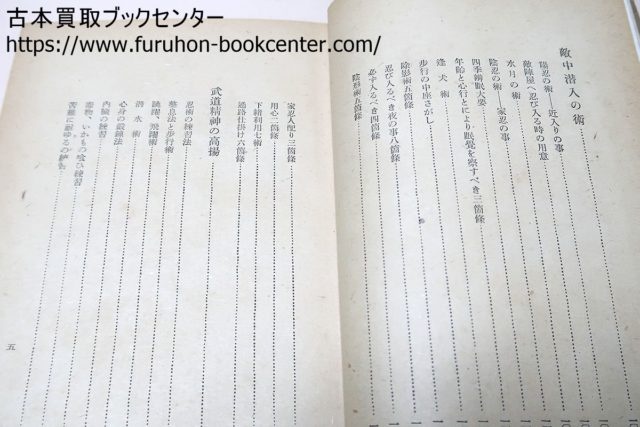 古本買取ブックセンター
https://www.furuhon-bookcenter.com/
敵中潜入の術
陽忍の術――近入りの事
敵陣屋へ忍び入る時の用意
水月の術
陰忍の術――家忍の事
四季辨眠大要
年齢と心行とにより眠覺を察すべき三箇條
逢犬術
歩行の中座さがし
除影術五箇條
忍び入るべき夜の事八箇條
必ず入るべき四箇條
陰形術五箇條
家忍人配り三箇條
用心二箇條
下緒利用七術
通路仕掛け六箇條
武道精神の高揚
忍術の練習法
整息法と歩行術
跳躍、飛躍術
潜水術
心身の鍛錬法
內臓の練習
毒物、いかもの喰い練習
苦難に耐ゆるの
五